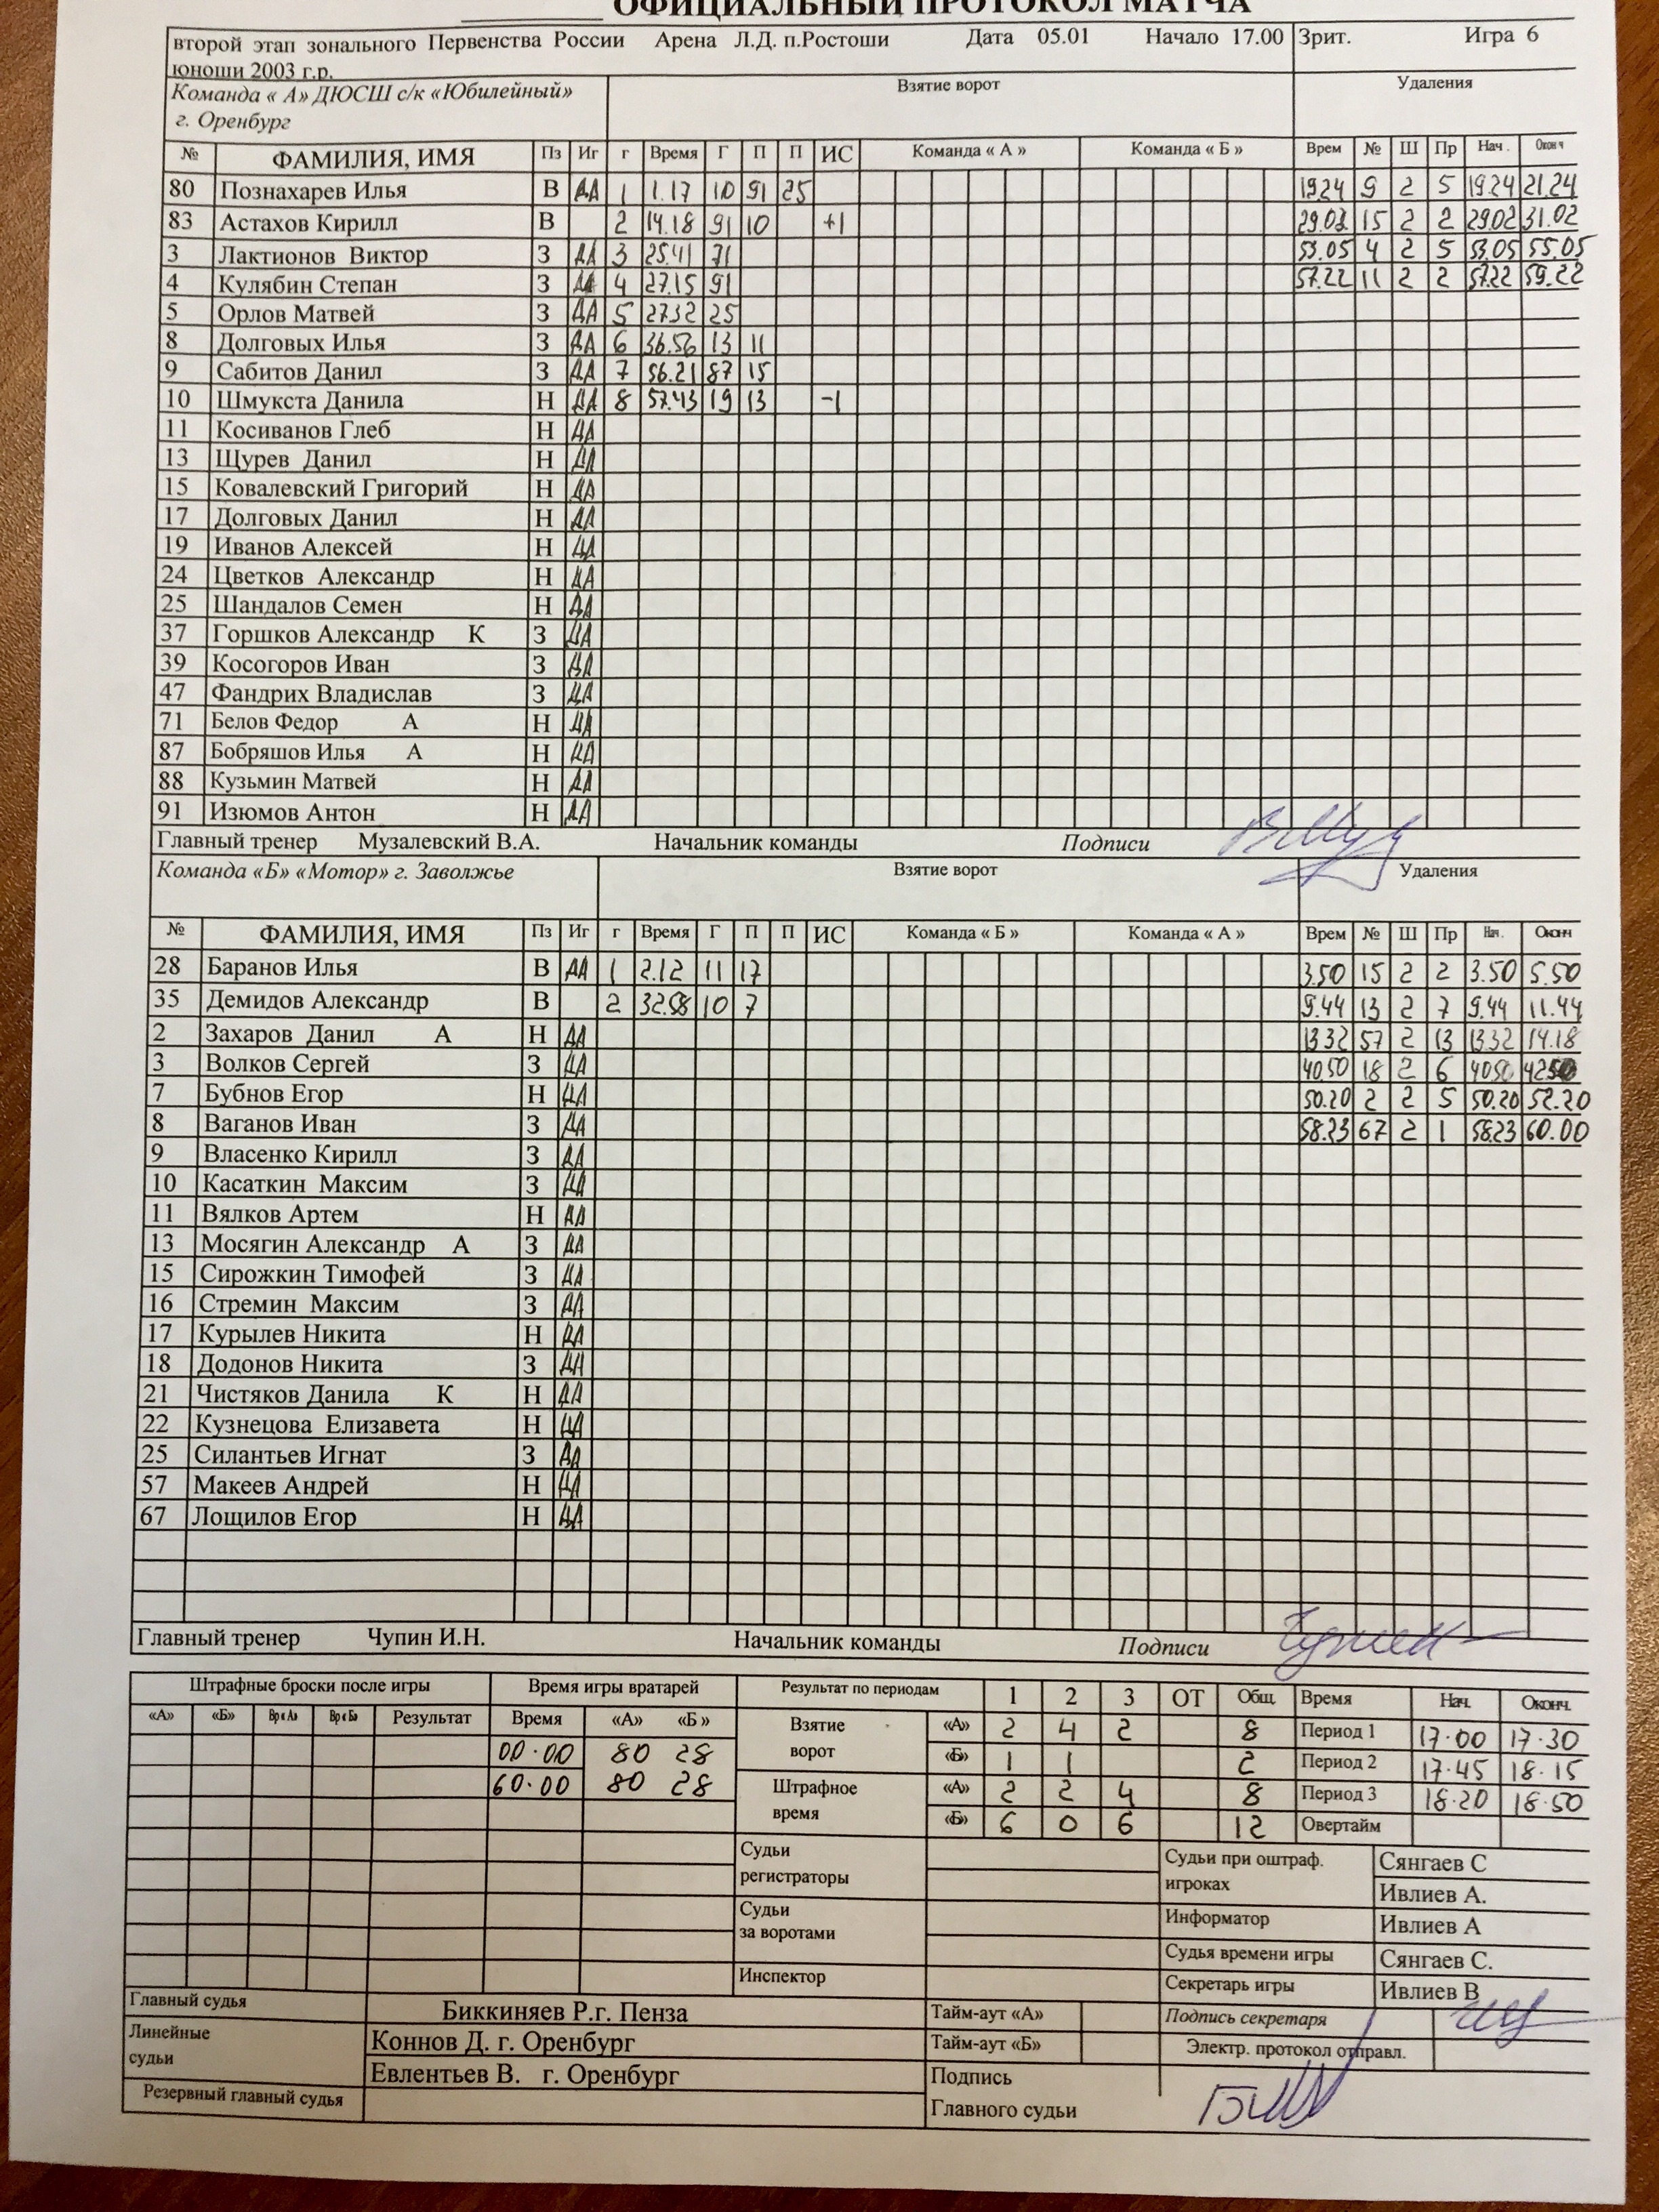 ОФИЦИАЛЬНЫЙ ПРОТОКОЛ МАТЧА
второй этап зонального Первенства России Арена Л.Д. п.Ростоши Дата 05.01 Начало 17.00 Зрит. Игра 6
юноши 2003 г.р.
Команда « А» ДЮСШ с/к «Юбилейный» Взятие ворот Удаления
г. Оренбург
№ ФАМИЛИЯ, ИМЯ Пз Иг г Время Г П П ИС Команда « А » Команда « Б » Врем № Ш Пр Нач . Оконч
80 Познахарев Илья В ДА 1 1.17 10 91 25 19.24 9 2 5 19.24 21.24
83 Астахов Кирилл В 2 14.18 91 10 +1 29.02 15 2 2 29.02 31.02
3 Лактионов Виктор З ДА 3 25.41 71 53.05 4 2 5 53.05 55.05
4 Кулябин Степан З ДА 4 27.15 91 57.22 11 2 2 57.22 59.22
5 Орлов Матвей З ДА 5 27.32 25
8 Долговых Илья З ДА 6 36.56 13 11
9 Сабитов Данил З ДА 7 56.21 87 15
10 Шмукста Данила Н ДА 8 57.43 19 13 -1
11 Косиванов Глеб Н ДА
13 Щурев Данил Н ДА
15 Ковалевский Григорий Н ДА
17 Долговых Данил Н ДА
19 Иванов Алексей Н ДА
24 Цветков Александр Н ДА
25 Шандалов Семен Н ДА
37 Горшков Александр К З ДА
39 Косогоров Иван З ДА
47 Фандрих Владислав З ДА
71 Белов Федор А Н ДА
87 Бобряшов Илья А Н ДА
88 Кузьмин Матвей Н ДА
91 Изюмов Антон Н ДА
Главный тренер Музалевский В.А. Начальник команды Подписи
Команда «Б» «Мотор» г. Заволжье Взятие ворот Удаления
№ ФАМИЛИЯ, ИМЯ Пз Иг г Время Г П П ИС Команда « Б » Команда « А » Врем № Ш Пр Нач . Оконч
28 Баранов Илья В ДА 1 2.12 11 17 3.50 15 2 2 3.50 5.50
35 Демидов Александр В 2 32.58 10 7 9.44 13 2 7 9.44 11.44
2 Захаров Данил А Н ДА 13.32 57 2 13 13.32 14.18
3 Волков Сергей З ДА 40.50 18 2 6 40.50 42.50
7 Бубнов Егор Н ДА 50.20 2 2 5 50.20 52.20
8 Ваганов Иван З ДА 58.23 67 2 1 58.23 60.00
9 Власенко Кирилл З ДА
10 Касаткин Максим З ДА
11 Вялков Артем Н ДА
13 Мосягин Александр А З ДА
15 Сирожкин Тимофей З ДА
16 Стремин Максим З ДА
17 Курылев Никита Н ДА
18 Додонов Никита З ДА
21 Чистяков Данила К Н ДА
22 Кузнецова Елизавета Н ДА
25 Силантьев Игнат З ДА
57 Макеев Андрей Н ДА
67 Лощилов Егор Н ДА
Главный тренер Чупин И.Н. Начальник команды Подписи
Штрафные броски после игры Время игры вратарей Результат по периодам 1 2 3 ОТ Общ. Время Нач. Оконч.
«А» «Б» Вр « А» Вр « Б» Результат Время «А» «Б » Взятие ворот «А» 2 4 2 8 Период 1 17.00 17.30
00.00 80 28 «Б» 1 1 2 Период 2 17.45 18.15
60.00 80 28 Штрафное время «А» 2 2 4 8 Период 3 18.20 18.50
«Б» 6 0 6 12 Овертайм
Судьи регистраторы Судьи при оштраф. игроках Сянгаев С
Ивлиев А.
Судьи за воротами Информатор Ивлиев А
Судья времени игры Сянгаев С.
Инспектор Секретарь игры Ивлиев В
Главный судья Биккиняев Р.г. Пенза Тайм-аут «А» Подпись секретаря
Линейные судьи Коннов Д. г. Оренбург Тайм-аут «Б» Электр. протокол отправл.
Евлентьев В. г. Оренбург Подпись
Резервный главный судья Главного судьи